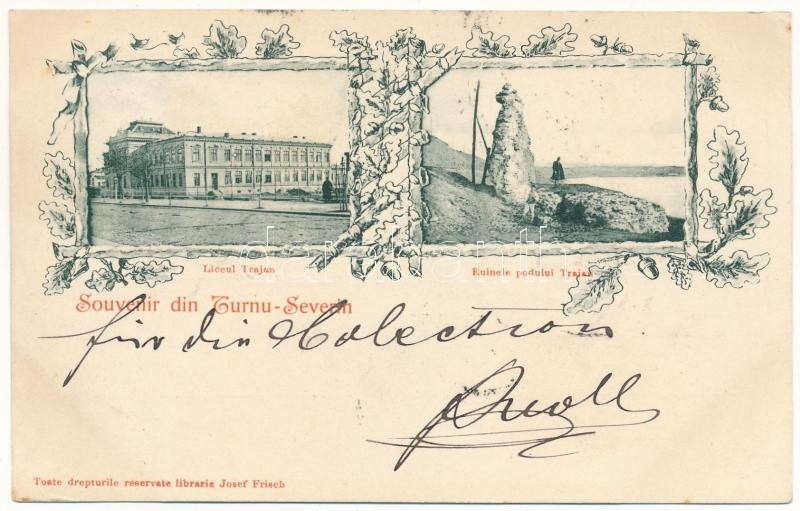 Liceul Trajan
Ruinele podului Trajan
Souvenir din Turnu-Severin
für die Colection
Toate drepturile reservate librarie Josef Frisch
darabanth